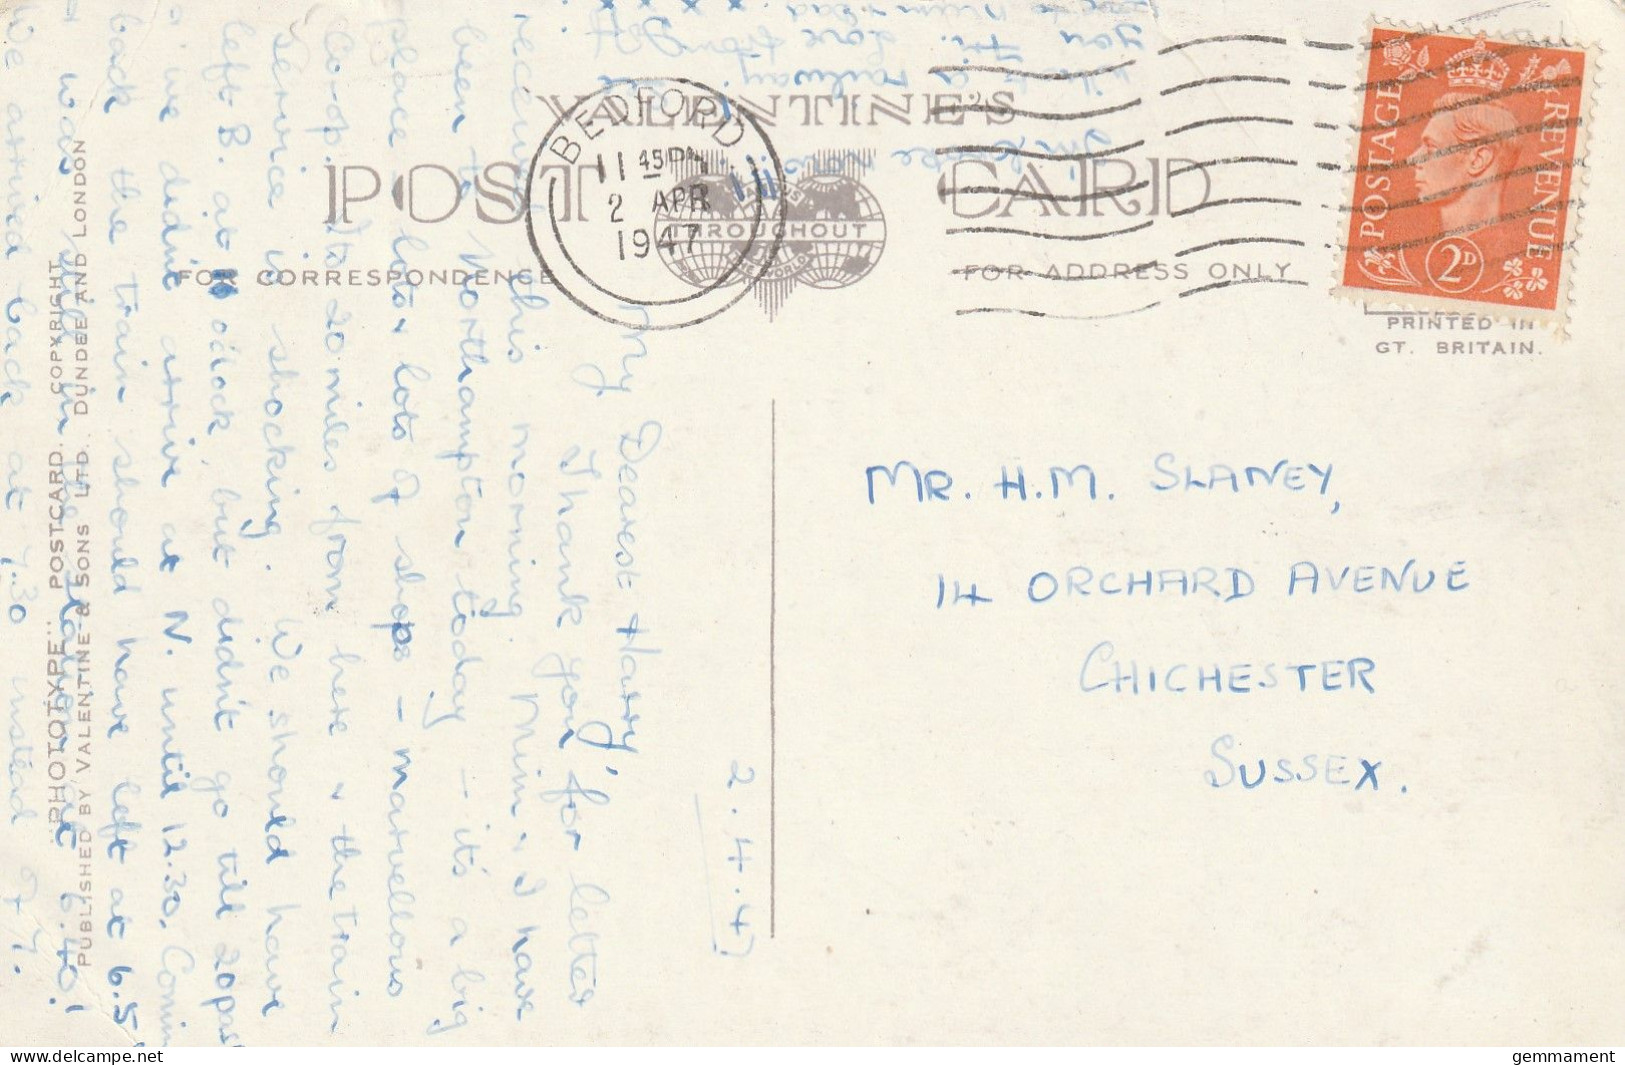 VALENTINE'S
POST CARD
VALENTINE'S
THROUGHOUT
THE WORLD
FOR CORRESPONDENCE
FOR ADDRESS ONLY
BEDFORD
11 45 PM
2 APR
1947
POSTAGE REVENUE
2D
PRINTED IN
GT. BRITAIN.
"PHOTOTYPE" POSTCARD. COPYRIGHT
PUBLISHED BY VALENTINE & SONS LTD. DUNDEE AND LONDON
2.4.47
My Dearest Harry,
Thank you for letter
received this morning. Mim & I have
been to Northampton today – it's a big
place lots & lots of shops – marvellous
Co-op. Its 20 miles from here & the train
service is shocking. We should have
left B. at 10 o'clock but didn't go till 20 past
& we didnt arrive at N. until 12.30. Coming
back the train should have left at 6.5
& was still in the station at 6.40!
We arrived back at 7.30 instead of 7.
railway.
you Fri. Love from
x x x
MR. H.M. SLANEY,
14 ORCHARD AVENUE
CHICHESTER
SUSSEX.
gemmament